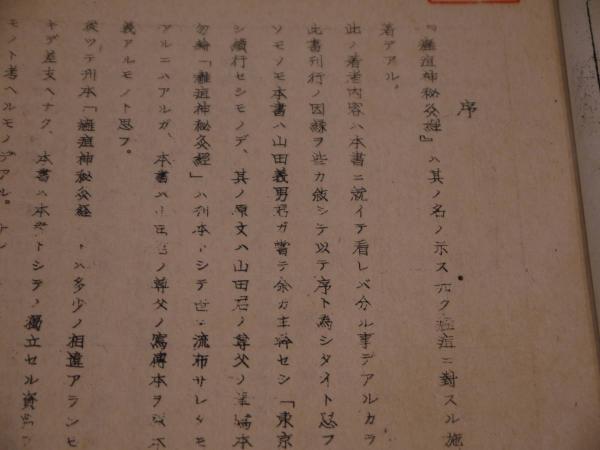 序
『癰疽神秘灸経』ハ其ノ名ノ示ス如ク癰疽ニ對スル施
着デアル。
此ノ着者内容ハ本書ニ就イテ看レバ分ル事デアルカラ
此書刊行ノ因縁ヲ些カ敘シテ以テ序ト為シタイト思フ
ソモノモ本書ハ山田義男君ガ嘗テ余ガ主幹セシ「東京
シ續行セシモノデ、其ノ原文ハ山田君ノ尊父ノ筆寫本
勿論「癰疽神秘灸経」ハ刊本トシテ世ニ流布サレタモ
アルニハアルガ、本書ハ山田君ノ尊父ノ寫傳本ヲ
義アルモノト思フ。
従ツテ刊本「癰疽神秘灸経 トハ多少ノ相違アランモ
差支ヘナク、本書ハ本書トシテノ獨立セル資
モノト考ヘルモノデアル。